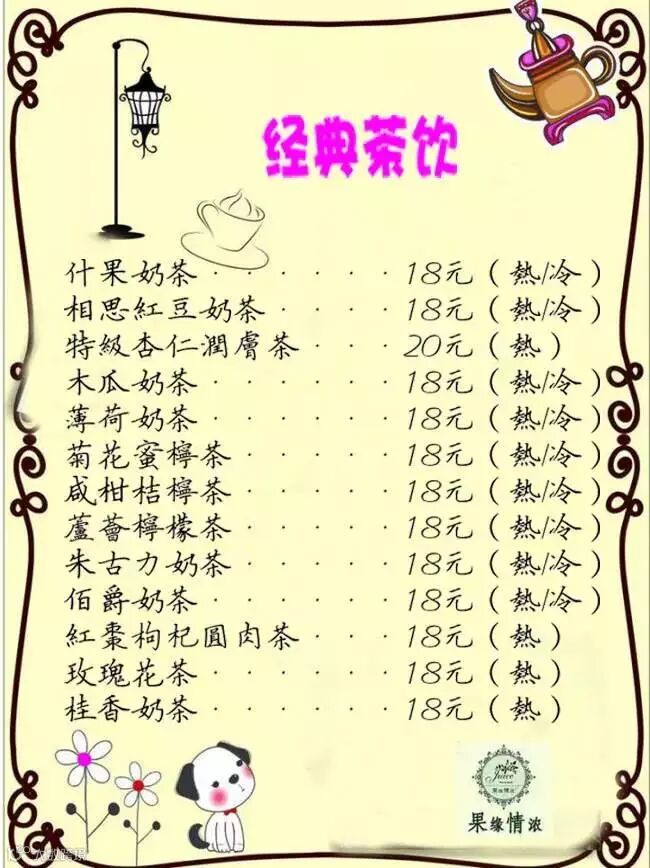 经典茶饮
什果奶茶······18元（熱/冷）
相思紅豆奶茶····18元（熱/冷）
特級杏仁潤膚茶···20元（熱）
木瓜奶茶······18元（熱/冷）
薄荷奶茶······18元（熱/冷）
菊花蜜檸茶·····18元（熱/冷）
咸柑桔檸茶·····18元（熱/冷）
蘆薈檸檬茶·····18元（熱/冷）
朱古力奶茶·····18元（熱/冷）
伯爵奶茶······18元（熱/冷）
紅棗枸杞圓肉茶···18元（熱）
玫瑰花茶······18元（熱）
桂香奶茶······18元（熱）
Juice
果缘情浓
果缘情浓